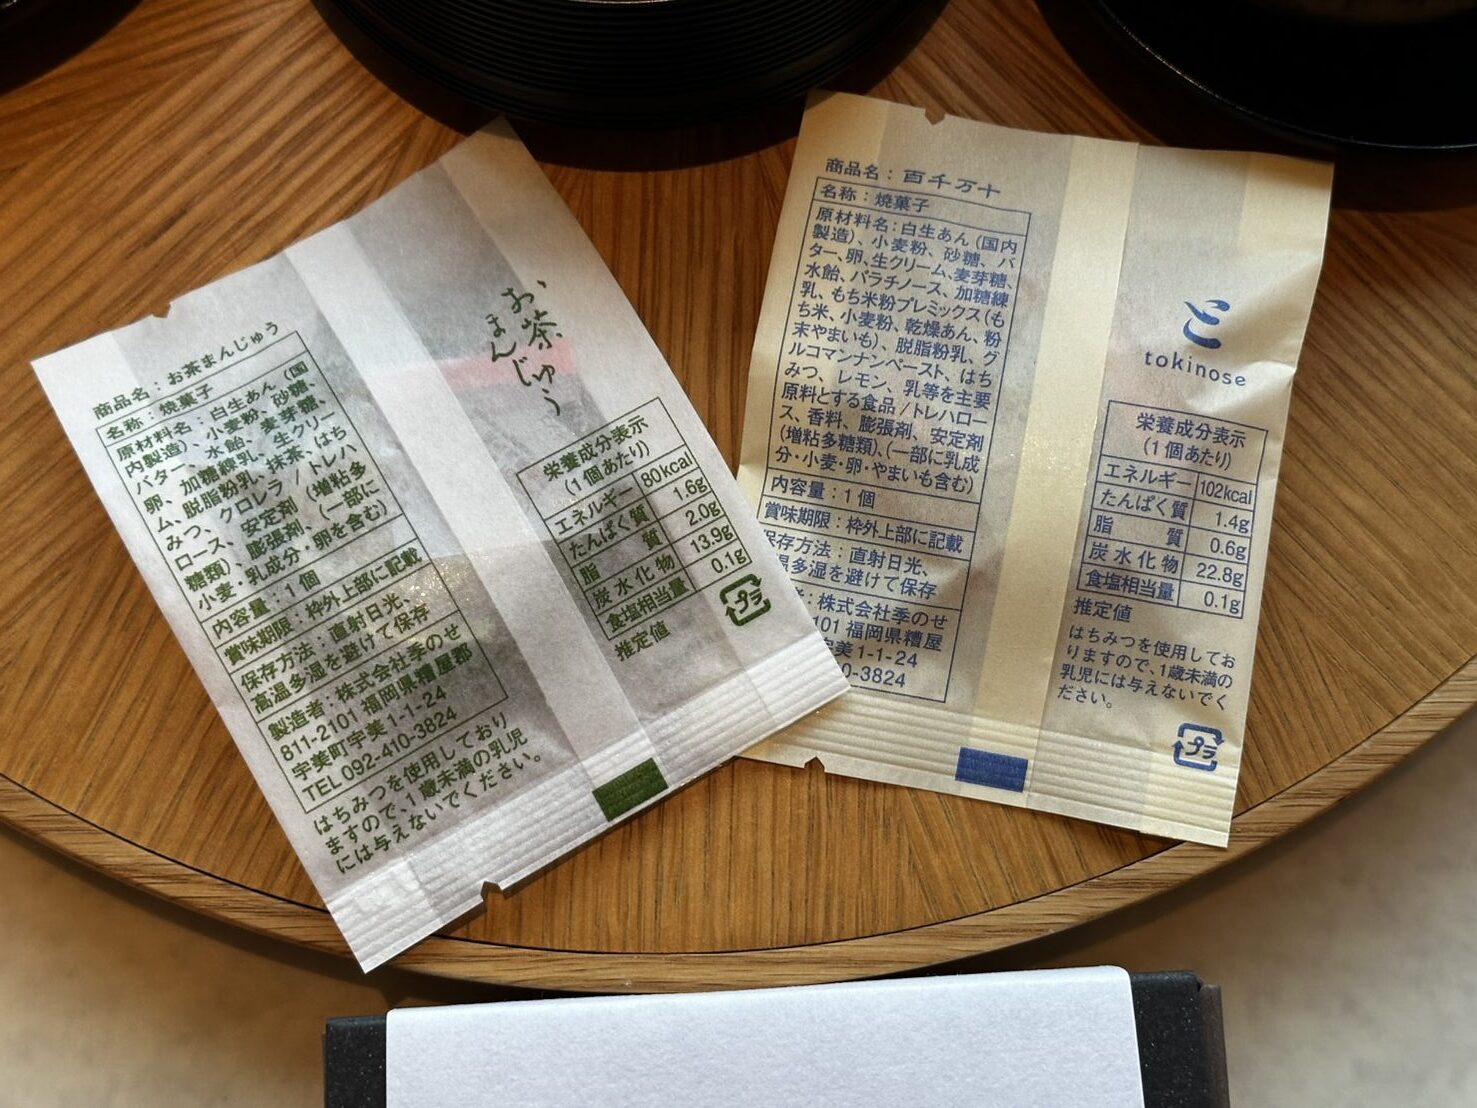 商品名：お茶まんじゅう
名称：焼菓子
原材料名：白生あん（国
内製造）、小麦粉、砂糖、
バター、水飴、麦芽糖、
卵、加糖練乳、生クリー
ム、脱脂粉乳、抹茶、はち
みつ、クロレラ／トレハ
ロース、安定剤（増粘多
糖類）、膨張剤、（一部に
小麦・乳成分・卵を含む）
内容量：1個
賞味期限：枠外上部に記載
保存方法：直射日光、
高温多湿を避けて保存
製造者：株式会社季のせ
811-2101 福岡県糟屋郡
宇美町宇美1-1-24
TEL092-410-3824
はちみつを使用しており
ますので、1歳未満の乳児
には与えないでください。
お茶
まんじゅう
栄養成分表示
（1個あたり）
エネルギー 80kcal
たんぱく質 1.6g
脂質 2.0g
炭水化物 13.9g
食塩相当量 0.1g
推定値
プラ
商品名：百千万十
名称：焼菓子
原材料名：白生あん（国内
製造）、小麦粉、砂糖、バ
ター、卵、生クリーム、麦芽糖、
水飴、パラチノース、加糖練
乳、もち米粉プレミックス（も
ち米、小麦粉、乾燥あん、粉
末やまいも）、脱脂粉乳、グ
ルコマンナンペースト、はち
みつ、レモン、乳等を主要
原料とする食品／トレハロー
ス、香料、膨張剤、安定剤
（増粘多糖類）、（一部に乳成
分・小麦・卵・やまいも含む）
内容量：1個
賞味期限：枠外上部に記載
保存方法：直射日光、
温多湿を避けて保存
：株式会社季のせ
101 福岡県糟屋
宇美1-1-24
0-3824
tokinose
栄養成分表示
（1個あたり）
エネルギー 102kcal
たんぱく質 1.4g
脂質 0.6g
炭水化物 22.8g
食塩相当量 0.1g
推定値
はちみつを使用してお
りますので、1歳未満の
乳児には与えないでく
ださい。
プラ